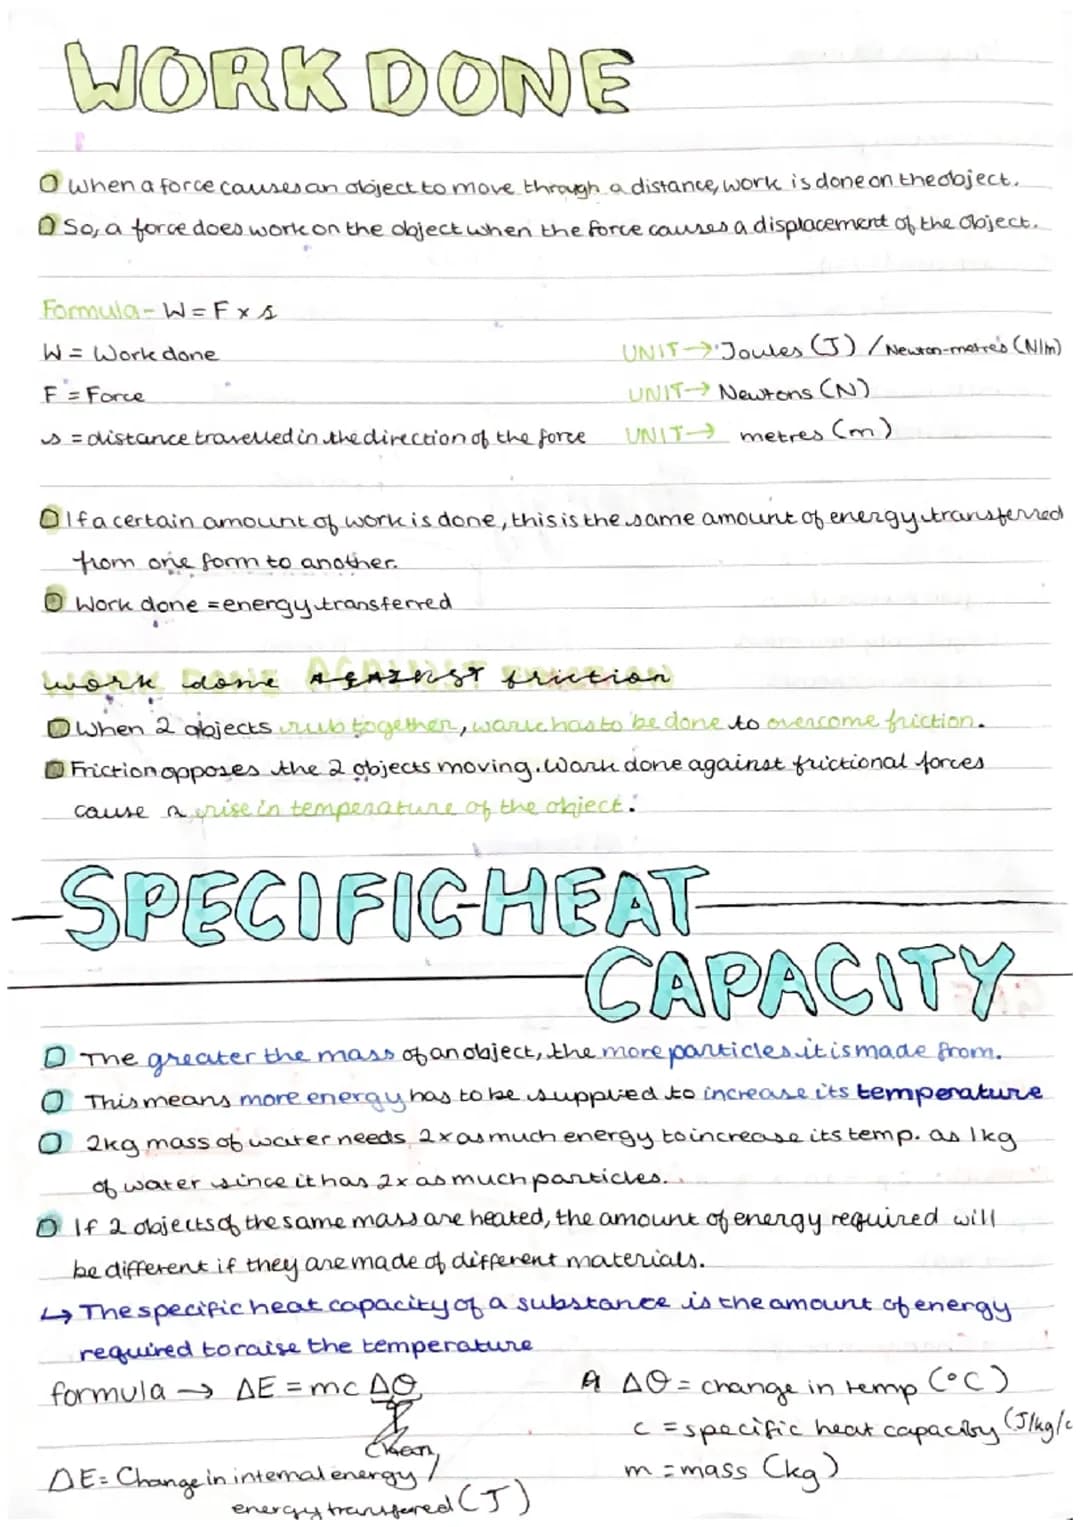 WORK DONE
When a force causes an object to move through a distance, work is done on the object.
So, a force does work on the object when the force causes a displacement of the object.
Formula - W = F x s
W = Work done UNIT → Joules (J) / Newton-metres (N/m)
F = Force UNIT → Newtons (N)
s = distance travelled in the direction of the force UNIT → metres (m)
If a certain amount of work is done, this is the same amount of energy transferred
from one form to another.
Work done = energy transferred
work done AGAINST friction
When 2 objects rub together, work has to be done to overcome friction.
Friction opposes the 2 objects moving. Work done against frictional forces
cause a rise in temperature of the object.
SPECIFIC HEAT
CAPACITY
The greater the mass of an object, the more particles it is made from.
This means more energy has to be supplied to increase its temperature
2kg mass of water needs 2x as much energy to increase its temp. as 1kg
of water since it has 2x as much particles.
If 2 objects of the same mass are heated, the amount of energy required will
be different if they are made of different materials.
↳ The specific heat capacity of a substance is the amount of energy
required to raise the temperature
formula → ΔE = mcΔθ
ΔE = Change in internal energy /
energy transferred (J)
Δθ = change in temp (°C)
c = specific heat capacity (J/kg/c
m = mass (kg)